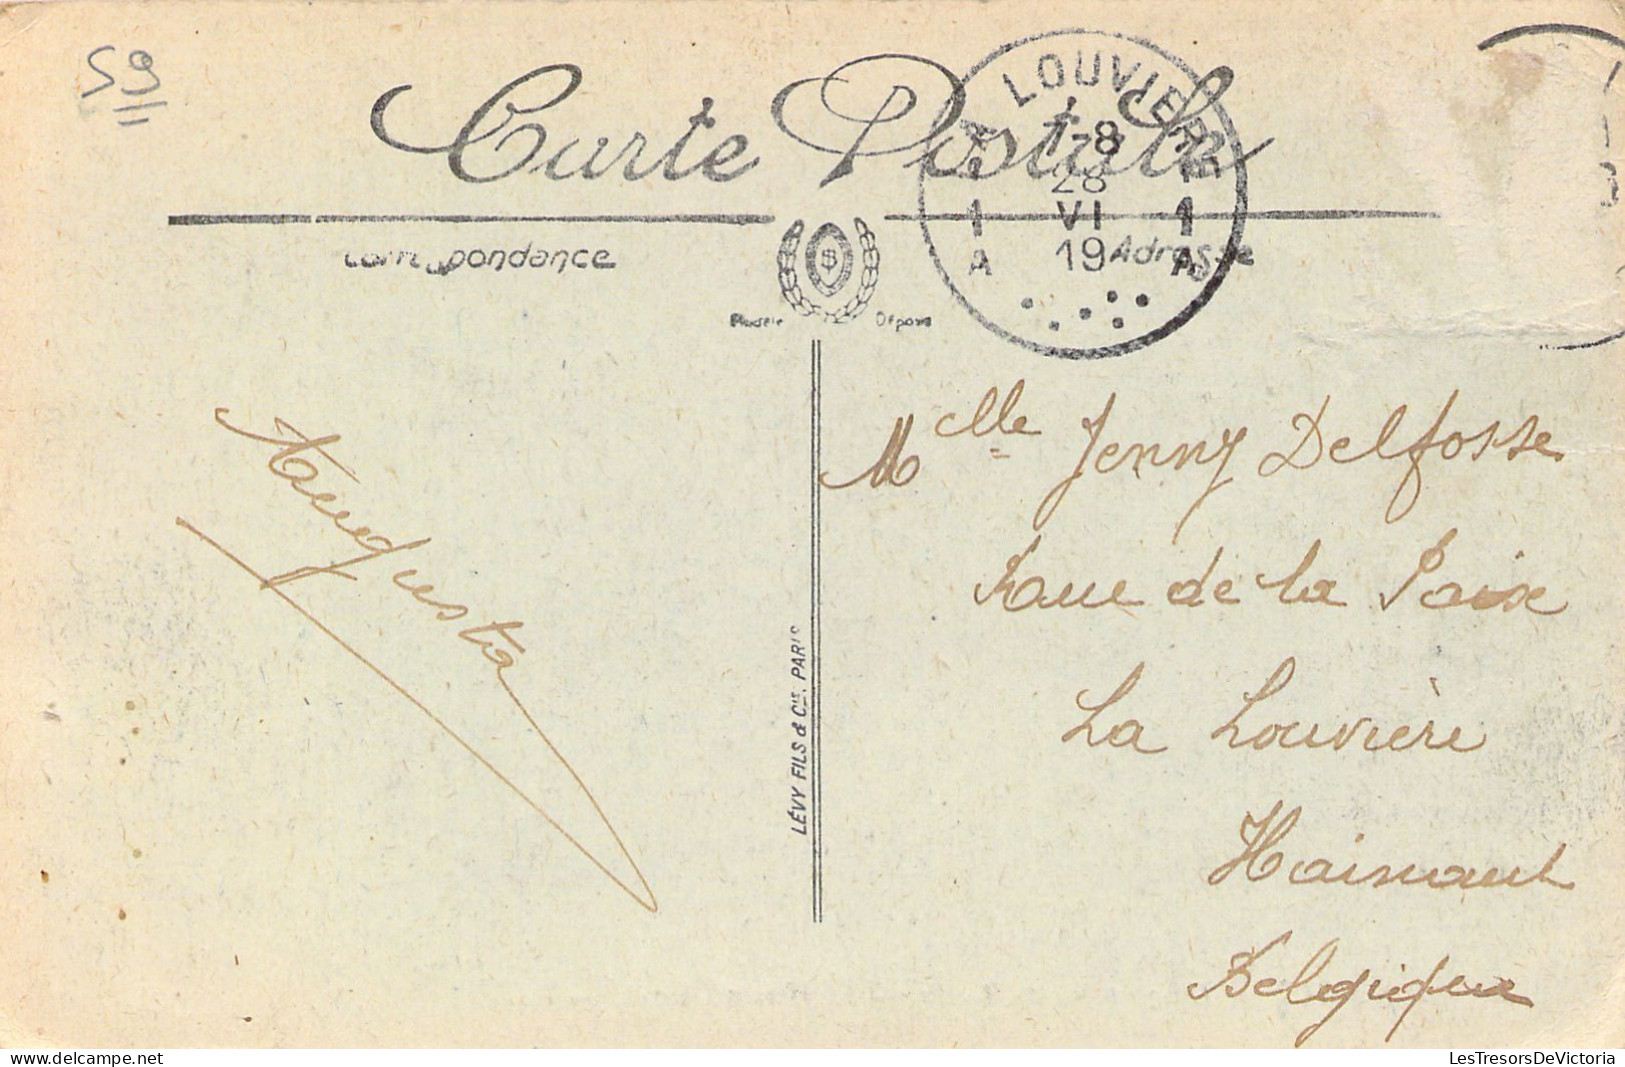 59
Carte Postale
LA LOUVIERE
7-8
28
1 VI 1
A 19 A
Correspondance
Adresse
$
Modèle Déposé
Mlle Jenny Delfosse
Rue de la Paix
La Louvière
Hainaut
Belgique
Augusta
LÉVY FILS & Cie, PARIS
LesTresorsDeVictoria